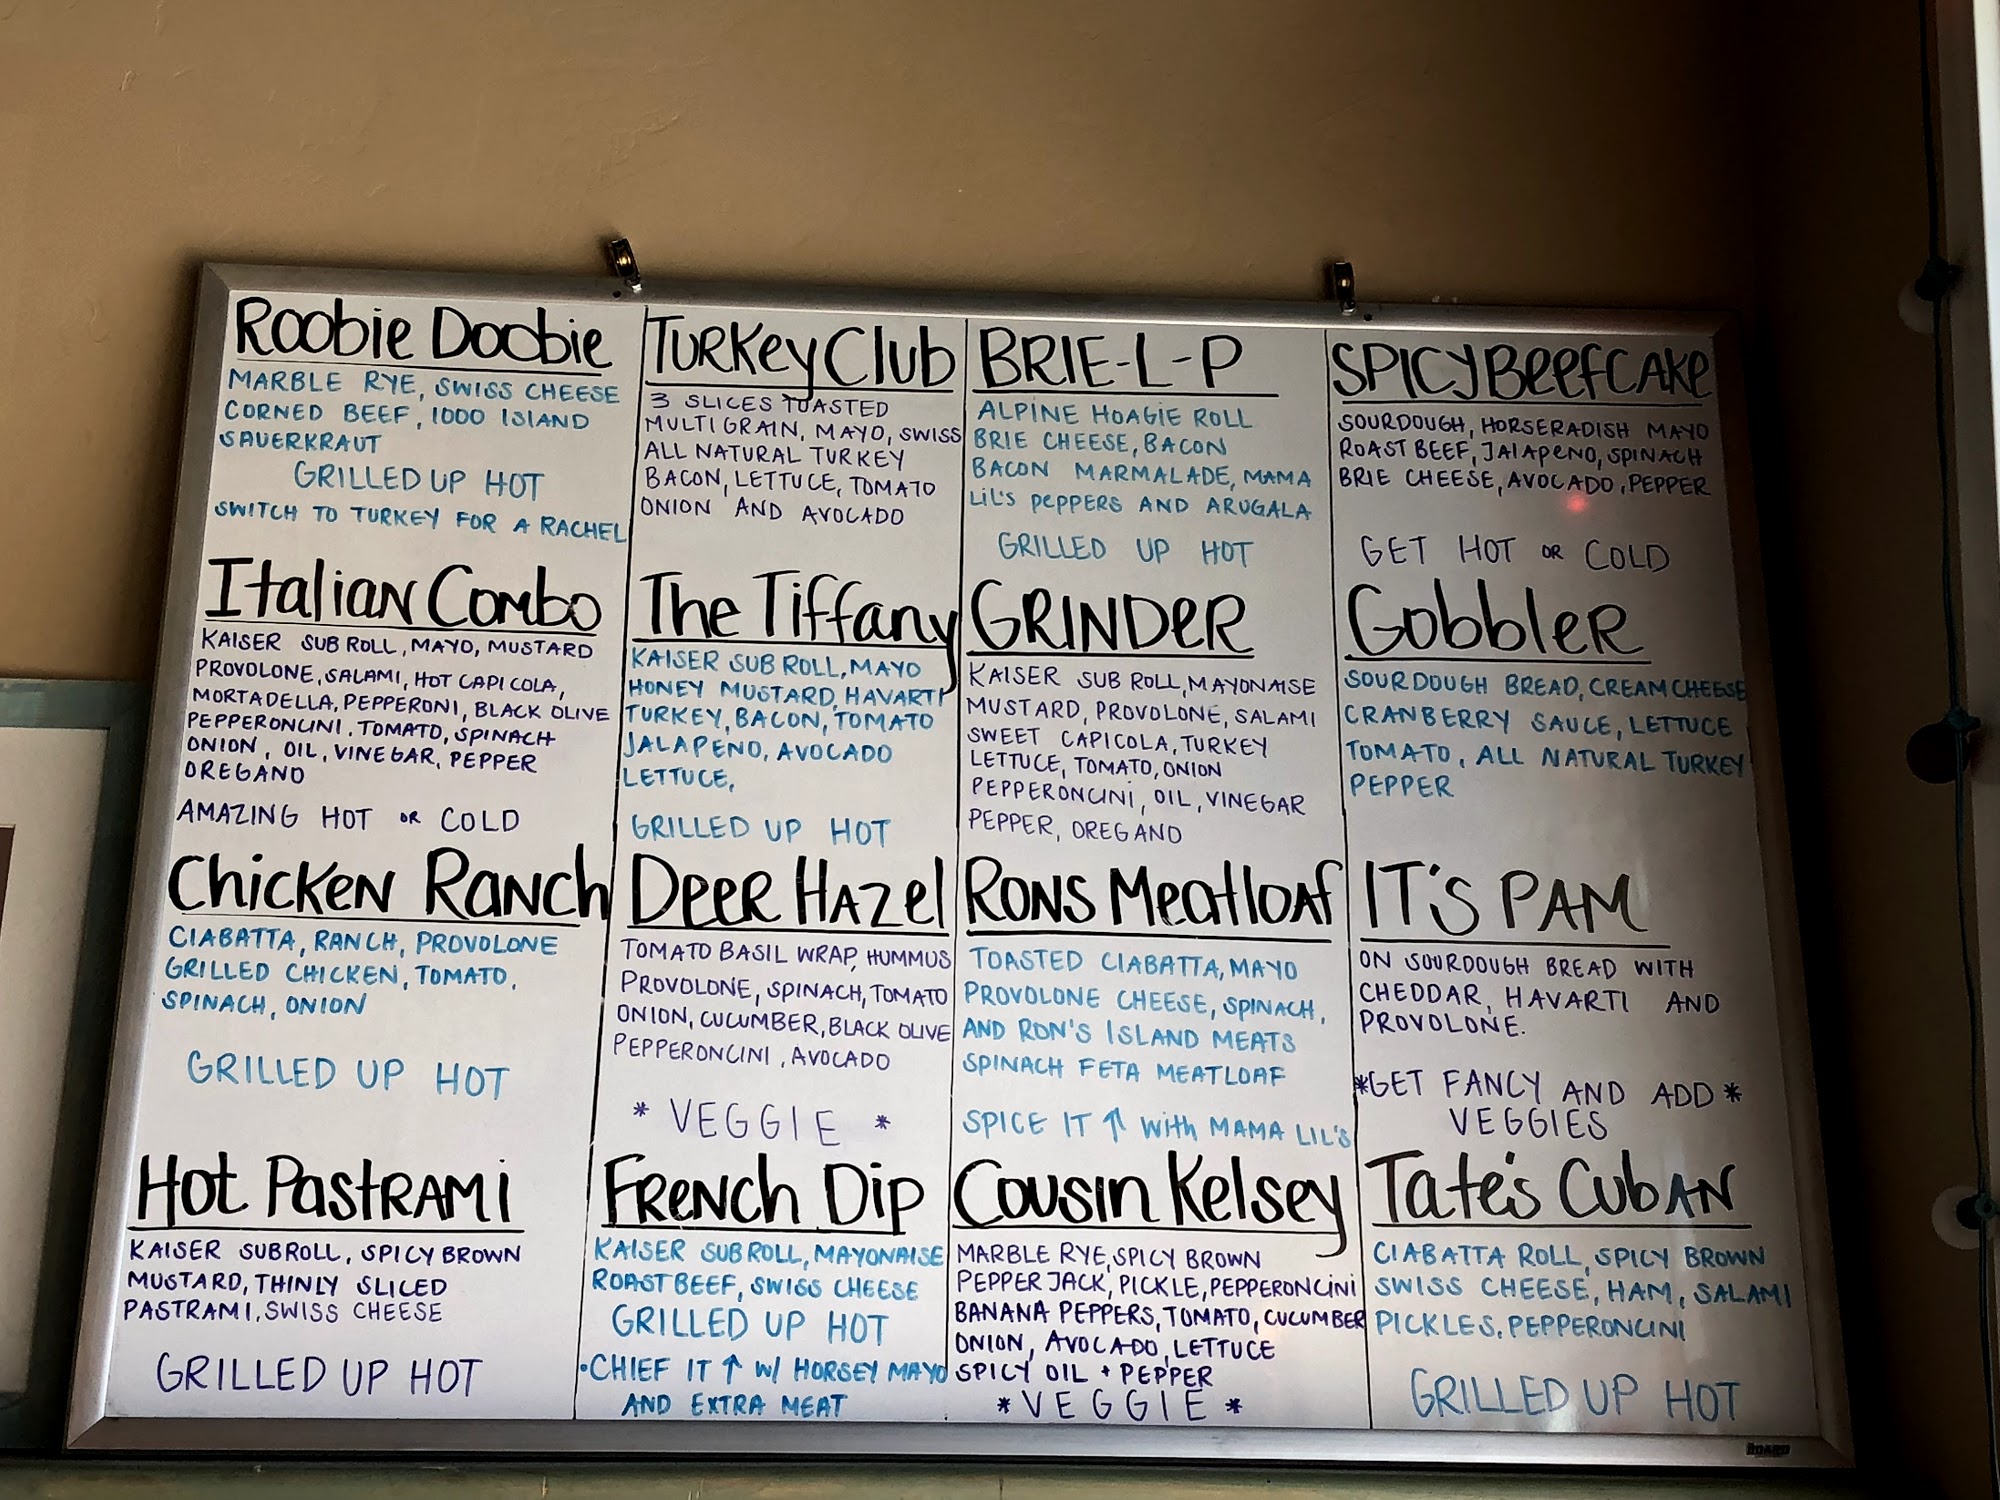 Roobie Doobie
MARBLE RYE, SWISS CHEESE
CORNED BEEF, 1000 ISLAND
SAUERKRAUT
GRILLED UP HOT
SWITCH TO TURKEY FOR A RACHEL
TURKey Club
3 SLICES TOASTED
MULTIGRAIN, MAYO, SWISS
ALL NATURAL TURKEY
BACON, LETTUCE, TOMATO
ONION AND AVOCADO
BRIE-L-P
ALPINE HOAGIE ROLL
BRIE CHEESE, BACON
BACON MARMALADE, MAMA
LIL'S PEPPERS AND ARUGALA
GRILLED UP HOT
SPICY BeefCAKe
SOURDOUGH, HORSERADISH MAYO
ROAST BEEF, JALAPENO, SPINACH
BRIE CHEESE, AVOCADO, PEPPER
GET HOT OR COLD
Italian Combo
KAISER SUB ROLL, MAYO, MUSTARD
PROVOLONE, SALAMI, HOT CAPICOLA,
MORTADELLA, PEPPERONI, BLACK OLIVE
PEPPERONCINI, TOMATO, SPINACH
ONION, OIL, VINEGAR, PEPPER
OREGANO
AMAZING HOT OR COLD
The Tiffany
KAISER SUB ROLL, MAYO
HONEY MUSTARD, HAVARTI
TURKEY, BACON, TOMATO
JALAPENO, AVOCADO
LETTUCE,
GRILLED UP HOT
GRINDER
KAISER SUB ROLL, MAYONAISE
MUSTARD, PROVOLONE, SALAMI
SWEET CAPICOLA, TURKEY
LETTUCE, TOMATO, ONION
PEPPERONCINI, OIL, VINEGAR
PEPPER, OREGANO
GobbleR
SOURDOUGH BREAD, CREAM CHEESE
CRANBERRY SAUCE, LETTUCE
TOMATO, ALL NATURAL TURKEY
PEPPER
Chicken Ranch
CIABATTA, RANCH, PROVOLONE
GRILLED CHICKEN, TOMATO,
SPINACH, ONION
GRILLED UP HOT
DeeR HAZel
TOMATO BASIL WRAP, HUMMUS
PROVOLONE, SPINACH, TOMATO
ONION, CUCUMBER, BLACK OLIVE
PEPPERONCINI, AVOCADO
* VEGGIE *
RONS MeatloAf
TOASTED CIABATTA, MAYO
PROVOLONE CHEESE, SPINACH,
AND RON'S ISLAND MEATS
SPINACH FETA MEATLOAF
SPICE IT ↑ With MAMA LIL'S
IT'S PAM
ON SOURDOUGH BREAD WITH
CHEDDAR, HAVARTI AND
PROVOLONE.
*GET FANCY AND ADD *
VEGGIES
Hot PastRAMi
KAISER SUBROLL, SPICY BROWN
MUSTARD, THINLY SLICED
PASTRAMI, SWISS CHEESE
GRILLED UP HOT
FRENCh Dip
KAISER SUBROLL, MAYONAISE
ROAST BEEF, SWISS CHEESE
GRILLED UP HOT
•CHIEF IT ↑ W/ HORSEY MAYO
AND EXTRA MEAT
Cousin Kelsey
MARBLE RYE, SPICY BROWN
PEPPER JACK, PICKLE, PEPPERONCINI
BANANA PEPPERS, TOMATO, CUCUMBER
ONION, AVOCADO, LETTUCE
SPICY OIL + PEPPER
* VEGGIE *
Tate's CubAN
CIABATTA ROLL, SPICY BROWN
SWISS CHEESE, HAM, SALAMI
PICKLES, PEPPERONCINI
GRILLED UP HOT